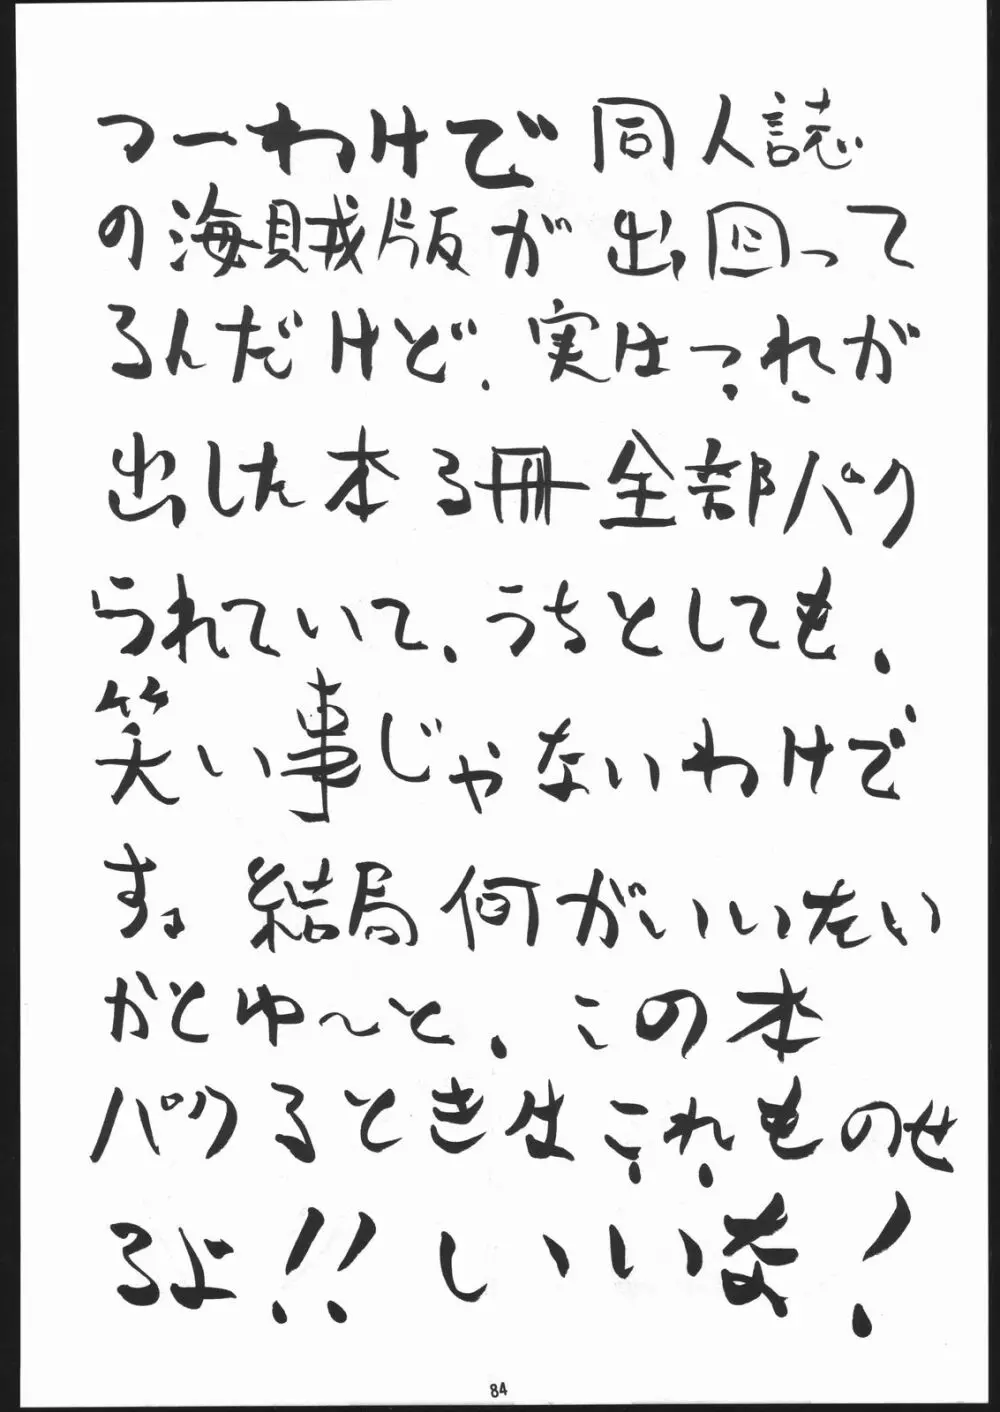 つーわけで 同人誌
の海賊版が出回って
るんだけど、実はこれが
出した本3冊全部パク
られていて、うちとしても、
笑い事じゃないわけで
す。結局何がいいたい
かとゆ〜と、この本
パクるときはこれものせ
るよ!!いいな!
84